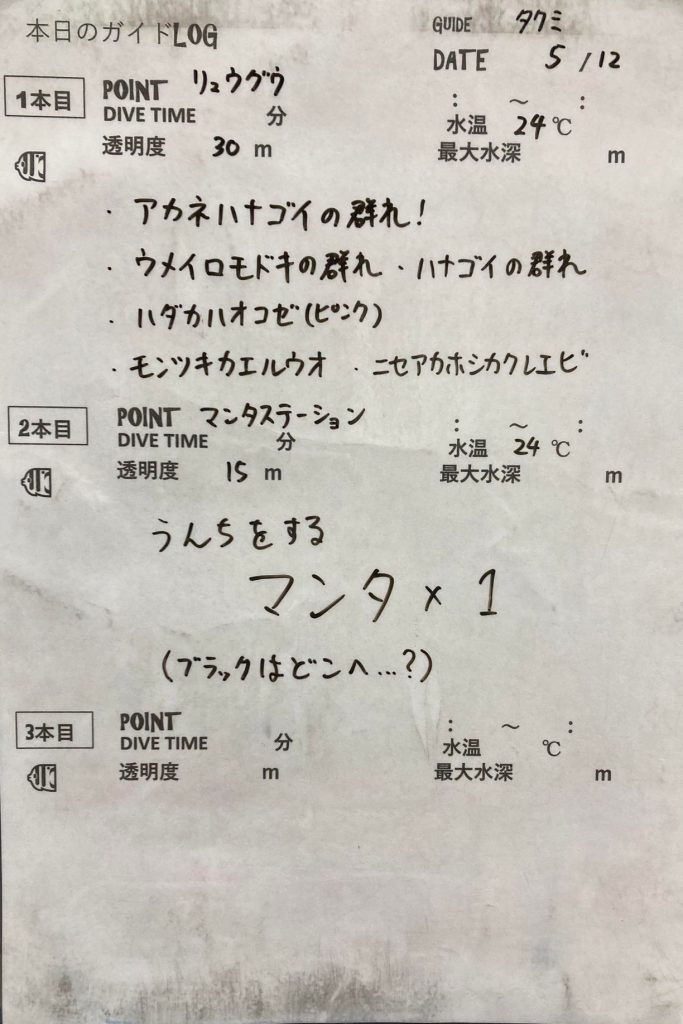 本日のガイドLOG
GUIDE タクミ
DATE 5 / 12
1本目 POINT リュウグウ
DIVE TIME 分 : ～ :
透明度 30 m 水温 24℃
最大水深 m
・アカネハナゴイの群れ!
・ウメイロモドキの群れ ・ハナゴイの群れ
・ハダカハオコゼ(ピンク)
・モンツキカエルウオ ・ニセアカホシカクレエビ
2本目 POINT マンタステーション
DIVE TIME 分 : ～ :
透明度 15 m 水温 24℃
最大水深 m
うんちをする
マンタ × 1
(ブラックはどこへ…?)
3本目 POINT
DIVE TIME 分 : ～ :
透明度 m 水温 ℃
最大水深 m